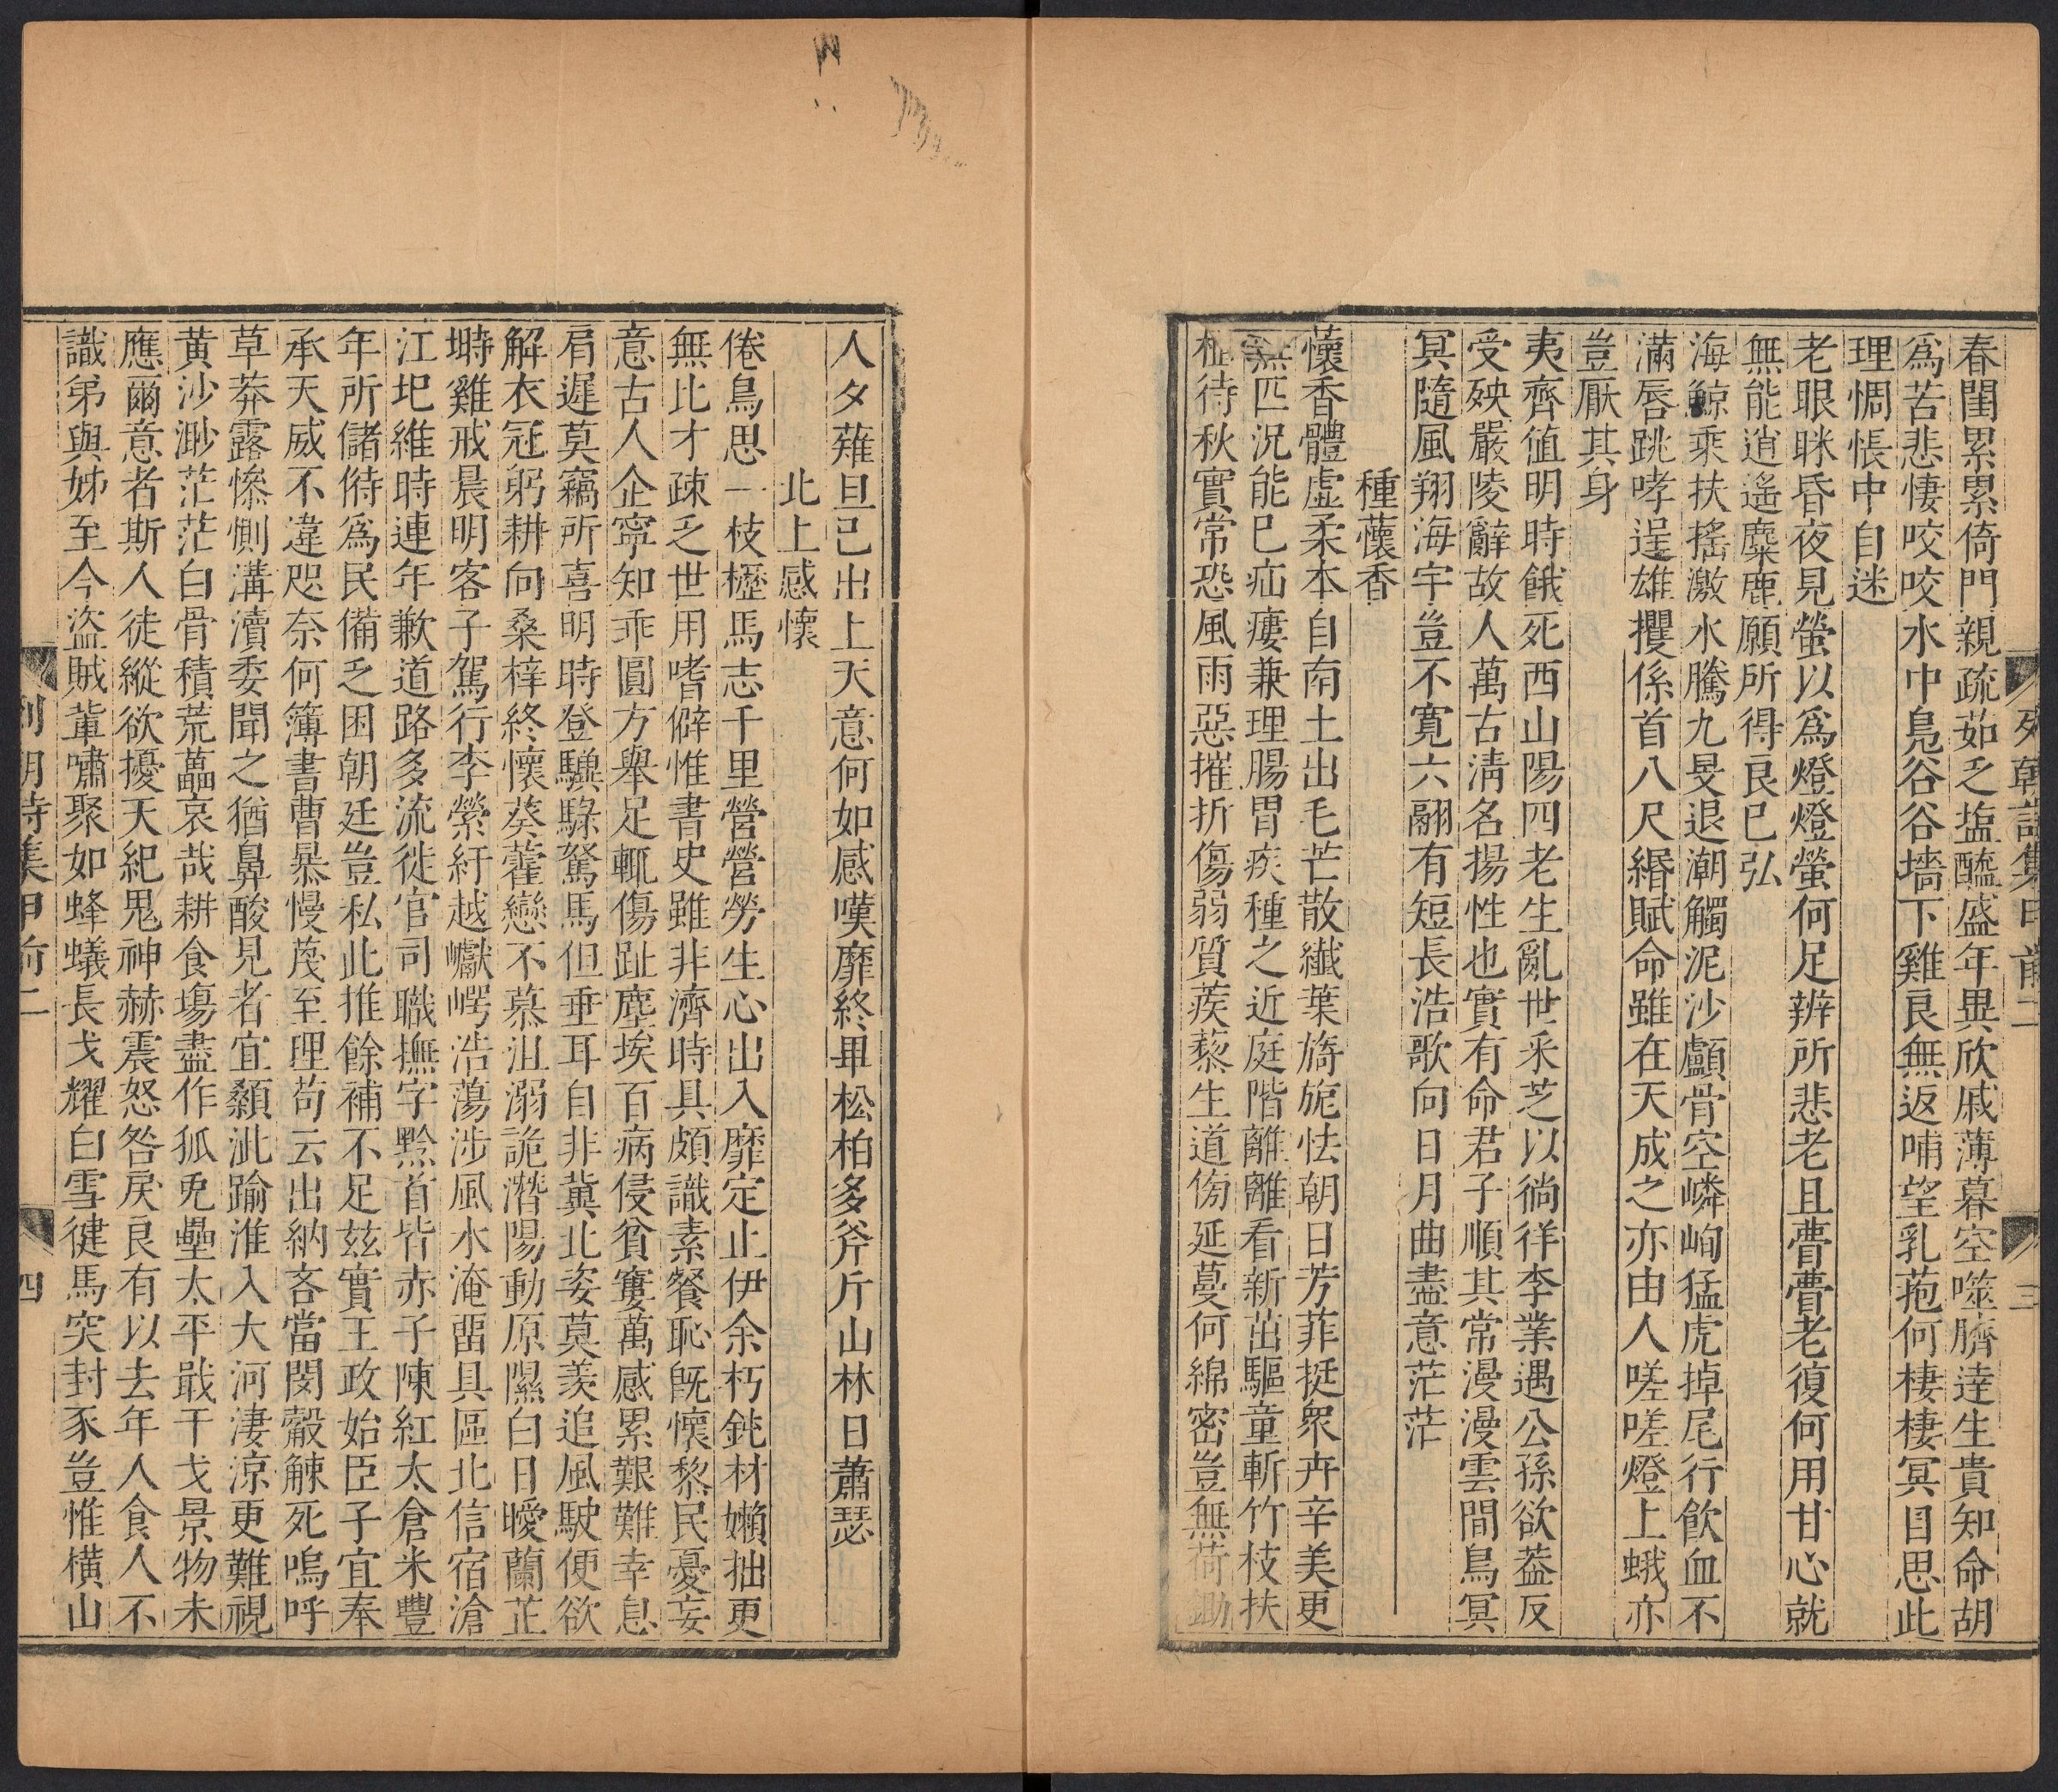 春閨累累倚門親疏茹乏塩醯盛年異欣戚薄暮空噬臍達生貴知命胡
爲苦悲悽咬咬水中鳧谷谷墻下雞良無返哺望乳菢何棲棲冥目思此
理惆悵中自迷
老眼眯昏夜見螢以爲燈燈螢何足辨所悲老且瞢瞢老復何用甘心就
無能逍遙麋鹿願所得良已弘
海鯨乘扶搖激水騰九旻退潮觸泥沙顱骨空嶙峋猛虎掉尾行飲血不
滿唇跳哮逞雄攫係首八尺緡賦命雖在天成之亦由人嗟嗟燈上蛾亦
豈厭其身
夷齊值明時餓死西山陽四老生亂世采芝以徜徉李業遇公孫欲葢反
受殃嚴陵辭故人萬古淸名揚性也實有命君子順其常漫漫雲間鳥冥
冥隨風翔海宇豈不寬六翮有短長浩歌向日月曲盡意茫茫
種蘹香
蘹香體虛柔本自南土出毛芒散纖葉旖旎怯朝日芳菲挺衆卉辛美更
無匹況能已疝瘻兼理腸胃疾種之近庭階離離看新茁驅童斬竹枝扶
植待秋實常恐風雨惡摧折傷弱質蒺藜生道傍延蔓何綿密豈無荷鋤
列朝詩集甲前二
三
人夕薙旦已出上天意何如感嘆靡終畢松柏多斧斤山林日蕭瑟
北上感懷
倦鳥思一枝櫪馬志千里營營勞生心出入靡定止伊余朽鈍材嬾拙更
無比才疎乏世用嗜僻惟書史雖非濟時具頗識素餐恥旣懷黎民憂妄
意古人企寧知乖圓方舉足輒傷趾塵埃百病侵貧窶萬感累艱難幸息
肩遲莫竊所喜明時登驥騄駑馬但垂耳自非冀北姿莫羨追風駛便欲
解衣冠躬耕向桑梓終懷葵藿戀不慕沮溺詭潛陽動原隰白日曖蘭芷
塒雞戒晨明客子駕行李縈紆越巘崿浩蕩涉風水淹畱具區北信宿滄
江圯維時連年歉道路多流徙官司職撫字黔首皆赤子陳紅太倉米豐
年所儲偫爲民備乏困朝廷豈私此推餘補不足玆實王政始臣子宜奉
承天威不違咫奈何簿書曹㬥慢蔑至理苟云出納吝當閔觳觫死嗚呼
草莽露慘惻溝瀆委聞之猶鼻酸見者宜顙泚踰淮入大河淒涼更難視
黃沙渺茫茫白骨積荒藟哀哉耕食塲盡作狐兎壘太平戢干戈景物未
應爾意者斯人徒縱欲擾天紀鬼神赫震怒咎戾良有以去年人食人不
識弟與姊至今盜賊軰嘯聚如蜂蟻長戈耀白雪徤馬突封豕豈惟橫山
列朝詩集甲前二
四